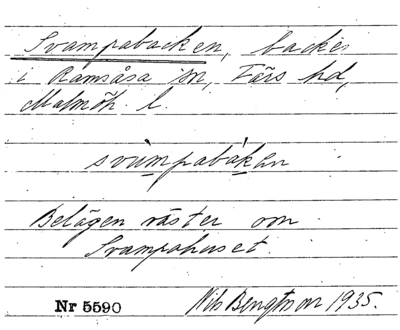 Svampabacken, backe
i Ramsåsa sn, Färs hd,
Malmöh. l.
svùmpabákan
Belägen väster om
Svampahuset.
Nr 5590
Nils Bengtsson 1935.